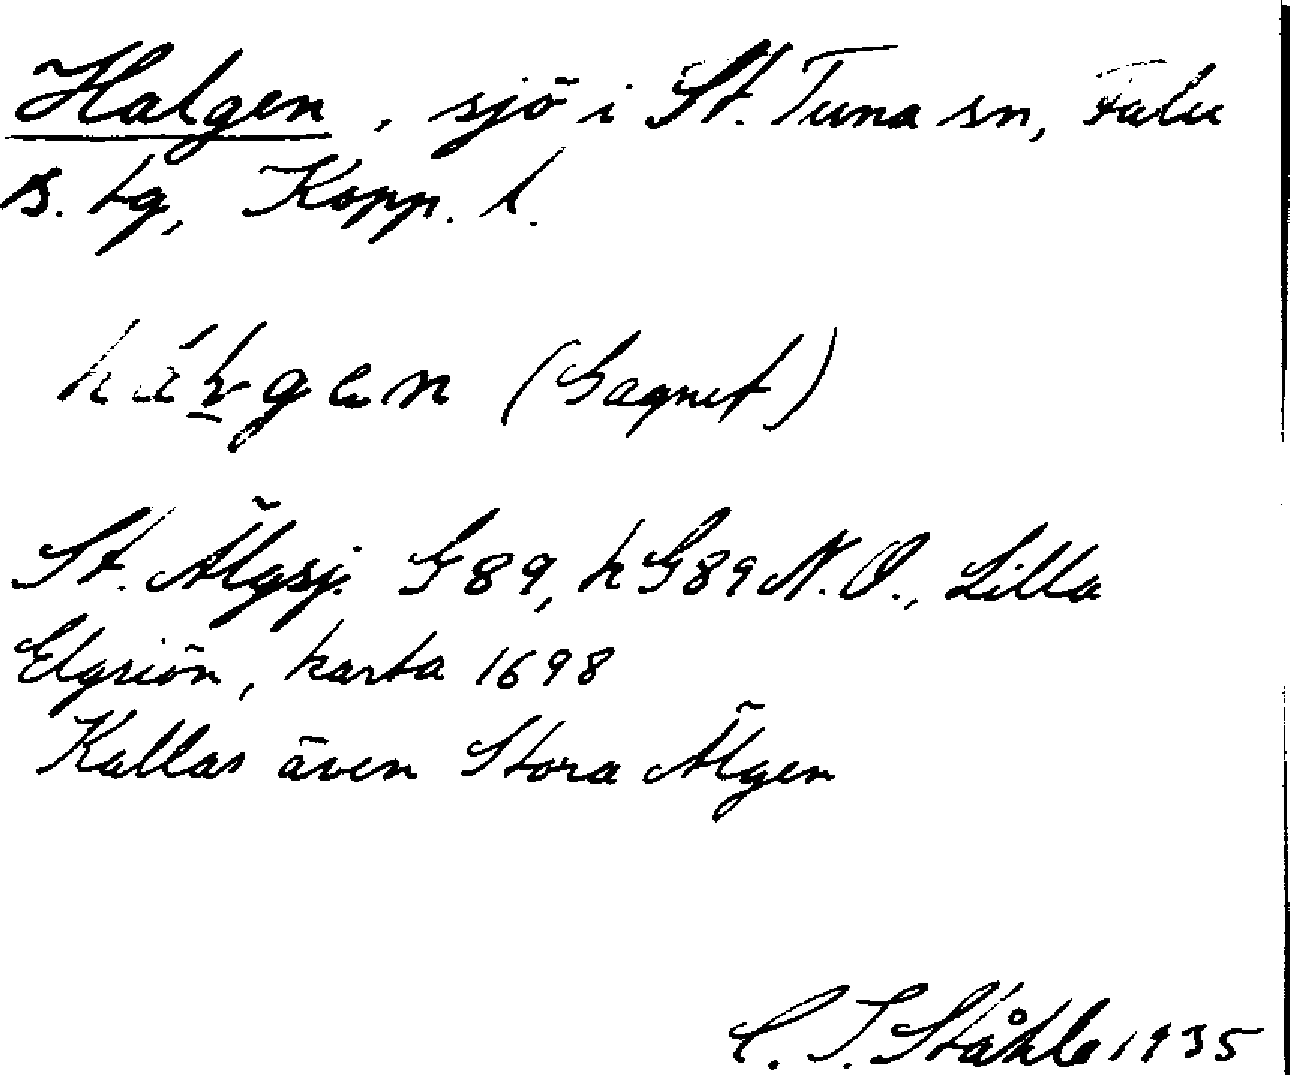 Halgen, sjö i St. Tuna sn, Falu
s. tg, Kopp. l.
(Gagnef)
St. Älgsj. G89, hG89 N.O., Lilla
Elgsiön, karta 1698
Kallas även Stora Älgen
C. I. Ståhle 1935